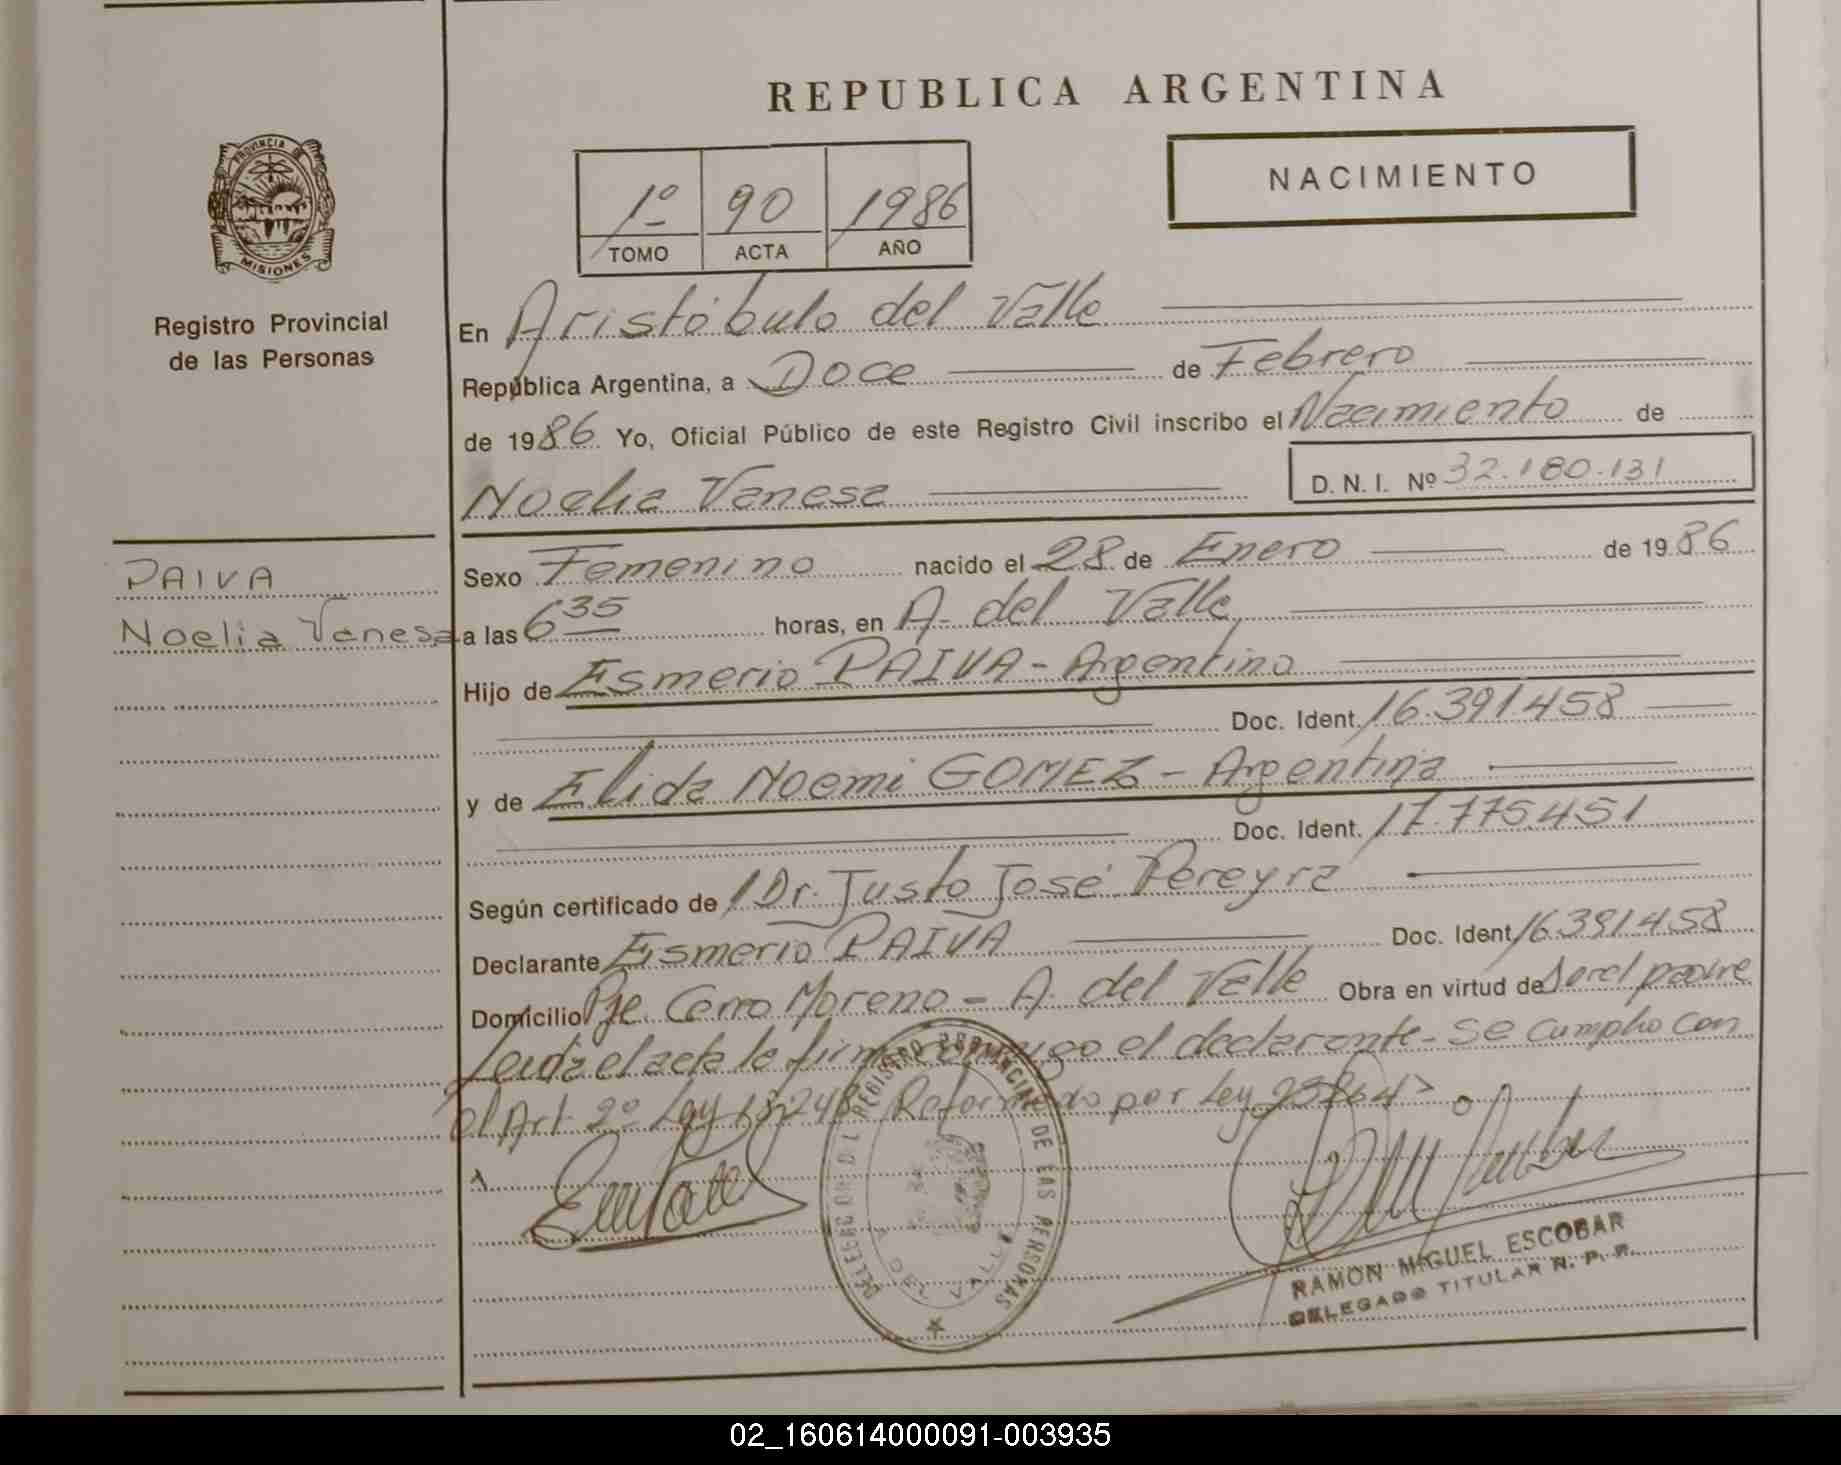 REPUBLICA ARGENTINA
PROVINCIA DE
MISIONES
Registro Provincial
de las Personas
1º 90 1986
TOMO ACTA AÑO
NACIMIENTO
En Aristóbulo del Valle
República Argentina, a Doce de Febrero
de 1986 Yo, Oficial Público de este Registro Civil inscribo el Nacimiento de
Noelia Vanesa D. N. I. Nº 32.180.131
PAIVA
Noelia Vanesa
Sexo Femenino nacido el 28 de Enero de 1986
a las 6 35 horas, en A. del Valle
Hijo de Esmerio PAIVA - Argentino
Doc. Ident. 16.391.458
y de Elida Noemi GOMEZ - Argentina
Doc. Ident. 17.775.451
Según certificado de Dr. Justo José Pereyra
Declarante Esmerio PAIVA Doc. Ident. 16.391.458
Domicilio Pje. Cerro Moreno - A. del Valle Obra en virtud de ser el padre
Leida el acta la firma conmigo el declarante - Se cumplio con
el Art. 2º Ley 18248 Reformado por Ley
REGISTRO PROVINCIAL DE LAS PERSONAS
A. DEL VALLE
RAMON MIGUEL ESCOBAR
DELEGADO TITULAR R. P. P.
02_160614000091-003935